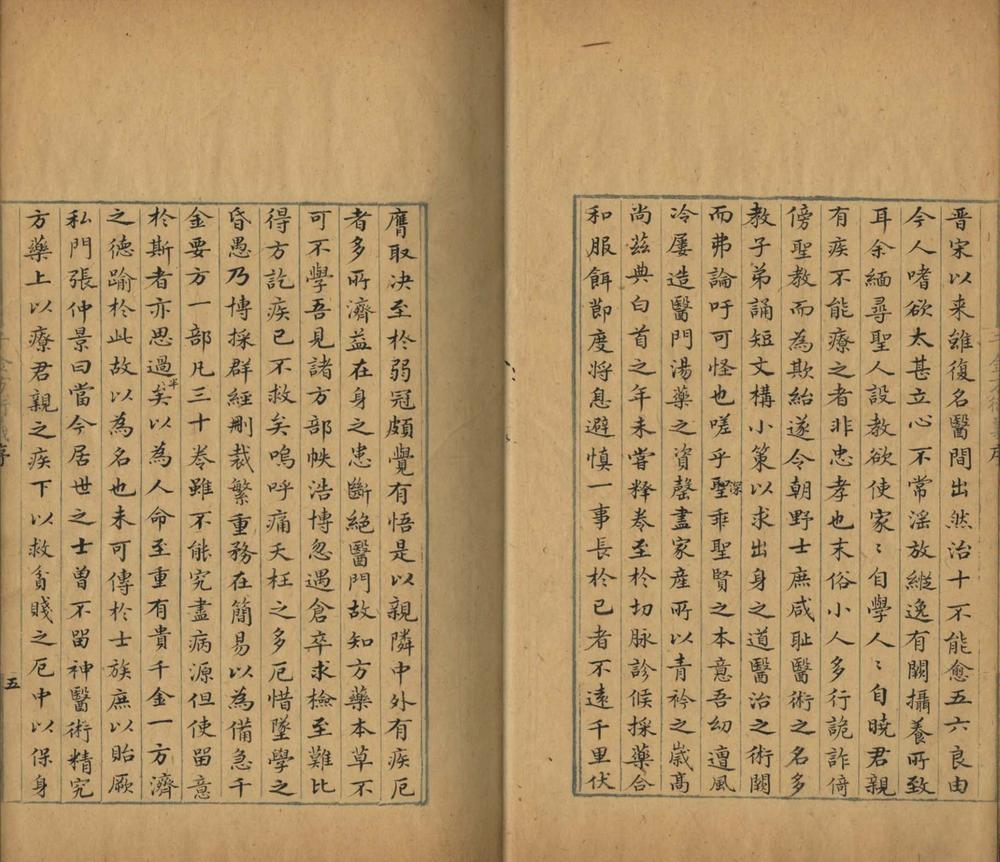 晋宋以来雖復名醫間出然治十不能愈五六良由
今人嗜欲太甚立心不常滛放縱逸有闕攝養所致
耳余緬尋聖人設教欲使家〻自學人〻自曉君親
有疾不能療之者非忠孝也末俗小人多行詭詐倚
傍聖教而為欺紿遂令朝野士庶咸耻醫術之名多
教子弟誦短文構小策以求出身之道醫治之術闕
而弗論吁可怪也嗟乎聖深乖聖賢之本意吾幼遭風
冷屢造醫門湯藥之資罄盡家産所以青衿之嵗髙
尚兹典白首之年未嘗釋卷至於切脉診候採藥合
和服餌節度将息避慎一事長於已者不遠千里伏
膺取决至於弱冠頗覺有悟是以親隣中外有疾厄
者多所濟益在身之患斷絕醫門故知方藥本草不
可不學吾見諸方部帙浩博忽遇倉卒求檢至難比
得方訖疾已不救矣嗚呼痛夭枉之多厄惜墜學之
昏愚乃博採群經刪裁繁重務在簡易以為備急千
金要方一部凡三十卷雖不能究盡病源但使留意
於斯者亦思過半矣以為人命至重有貴千金一方濟
之德踰於此故以為名也未可傳於士族庶以貽厥
私門張仲景曰當今居世之士曾不留神醫術精究
方藥上以療君親之疾下以救貧賤之厄中以保身
五